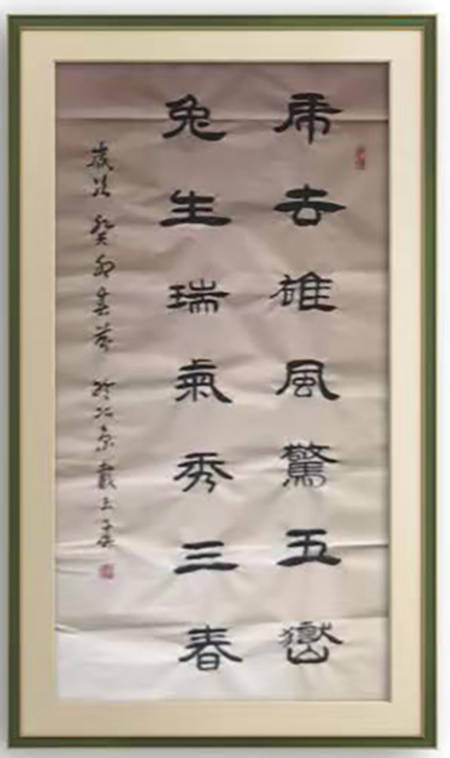 虎去雄風驚五嶽
兔生瑞氣秀三春
歲次癸卯孟春於北京戴上